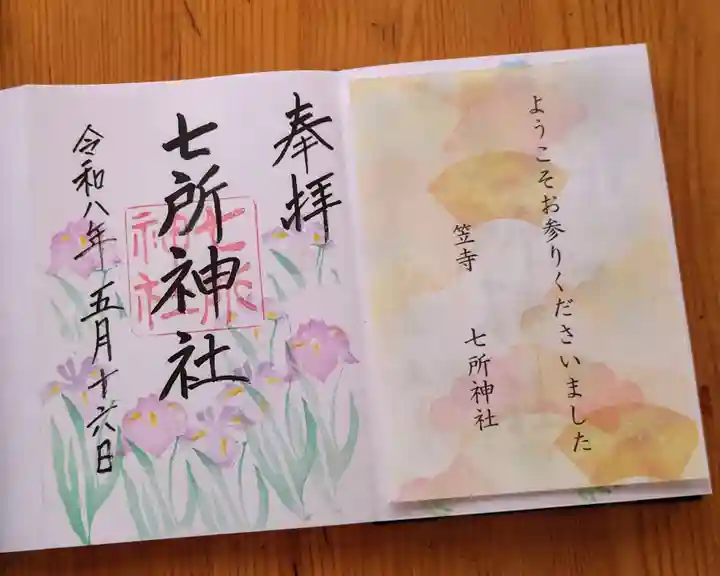 奉拝
七所神社
七所神社
令和八年 五月十六日
ようこそお参りくださいました
笠寺 七所神社